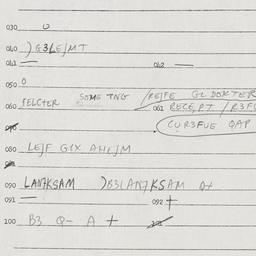 030 0
040 )G3LE/MT
041 — 062 —
050 0
060 FELCHER SOME TNG /REJFE GL DOKTER
061 RECE,PT /R3F
CUR3FUE QAP
080 LEJF GIX AHEJM
090 LANJKSAM )B3LANJKSAM A+
091 — 092 +
100 B3 Q- A +